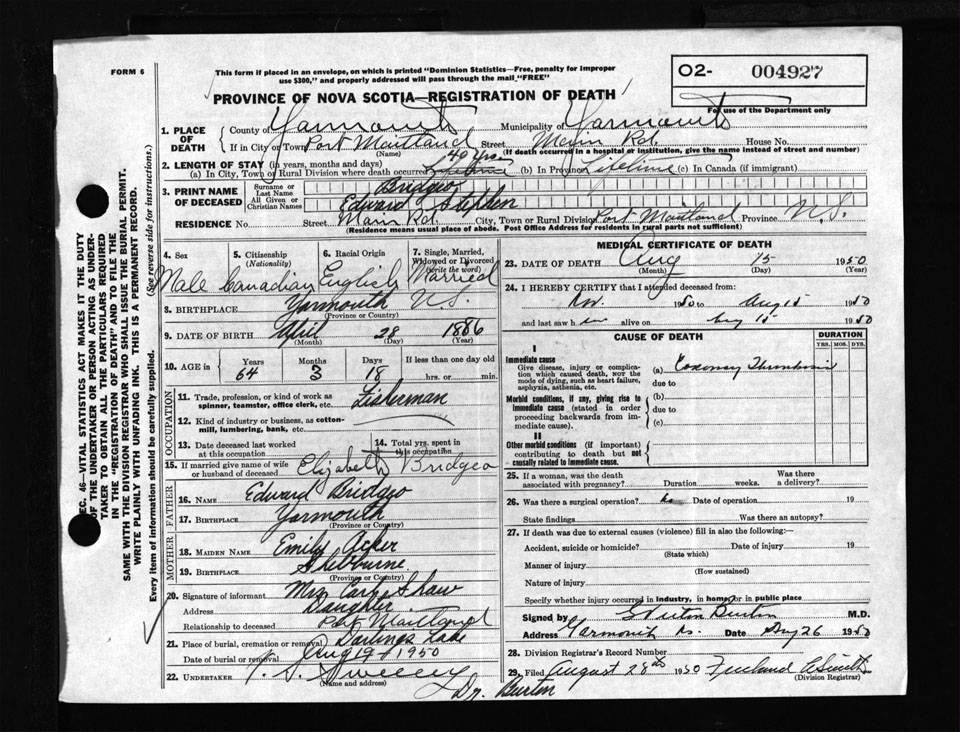 FORM 6
This form if placed in an envelope, on which is printed "Dominion Statistics—Free, penalty for improper
use $300," and properly addressed will pass through the mail "FREE"
O2- 004927
For use of the Department only
PROVINCE OF NOVA SCOTIA—REGISTRATION OF DEATH
1. PLACE OF DEATH
County of Yarmouth Municipality of Yarmouth
If in City or Town Port Maitland Street Main Rd. House No.
(Name) (If death occurred in a hospital or institution, give the name instead of street and number)
2. LENGTH OF STAY (in years, months and days) 40 yrs
(a) In City, Town or Rural Division where death occurred (b) In Province Lifetime (c) In Canada (if immigrant)
3. PRINT NAME OF DECEASED
Surname or Last Name Bridgeo
All Given or Christian Names Edward Stephen
RESIDENCE No. Street Main Rd. City, Town or Rural Division Port Maitland Province N.S.
(Residence means usual place of abode. Post Office Address for residents in rural parts not sufficient)
4. Sex Male
5. Citizenship (Nationality) Canadian
6. Racial Origin English
7. Single, Married, Widowed or Divorced (write the word) Married
8. BIRTHPLACE Yarmouth N.S.
(Province or Country)
9. DATE OF BIRTH April 28 1886
(Month) (Day) (Year)
10. AGE in Years 64 Months 3 Days 18 If less than one day old
hrs. or min.
OCCUPATION
11. Trade, profession or kind of work as spinner, teamster, office clerk, etc. Fisherman
12. Kind of industry or business, as cotton-mill, lumbering, bank, etc.
13. Date deceased last worked at this occupation
14. Total yrs. spent in this occupation
15. If married give name of wife or husband of deceased Elizabeth Bridgeo
FATHER
16. NAME Edward Bridgeo
17. BIRTHPLACE Yarmouth
(Province or Country)
MOTHER
18. MAIDEN NAME Emily Acker
19. BIRTHPLACE Shelbourne
(Province or Country)
20. Signature of informant Mrs Carl Shaw
Address Daughter
Relationship to deceased Port Maitland
21. Place of burial, cremation or removal Darlings Lake
Date of burial or removal Aug 19 1950
22. UNDERTAKER Sweeny
(Name and address)
MEDICAL CERTIFICATE OF DEATH
23. DATE OF DEATH Aug 15 1950
(Month) (Day) (Year)
24. I HEREBY CERTIFY that I attended deceased from:
1950 to Aug 15 1950
and last saw h im alive on Aug 15 1950
CAUSE OF DEATH
DURATION
YRS. MOS. DYS.
I
Immediate cause
Give disease, injury or complication which caused death, NOT the mode of dying, such as heart failure, asphyxia, asthenia, etc.
(a) Coronary Thrombosis
due to
Morbid conditions, if any, giving rise to immediate cause (stated in order proceeding backwards from immediate cause).
(b)
due to
(c)
II
Other morbid conditions (if important) contributing to death but not causally related to immediate cause.
25. If a woman, was the death associated with pregnancy? Duration weeks. Was there a delivery?
26. Was there a surgical operation? no Date of operation 19
State findings Was there an autopsy?
27. If death was due to external causes (violence) fill in also the following:—
Accident, suicide or homicide? Date of injury 19
(State which)
Manner of injury
(How sustained)
Nature of injury
Specify whether injury occurred in industry, in home, or in public place
Signed by Burton M.D.
Address Yarmouth Ns. Date Aug 26 1950
28. Division Registrar's Record Number
29. Filed August 28th 1950 Smith
(Division Registrar)
Dr. Burton
SEC. 46—VITAL STATISTICS ACT MAKES IT THE DUTY
OF THE UNDERTAKER OR PERSON ACTING AS UNDER-
TAKER TO OBTAIN ALL THE PARTICULARS REQUIRED
IN THE "REGISTRATION OF DEATH" AND TO FILE THE
SAME WITH THE DIVISION REGISTRAR WHO SHALL ISSUE THE BURIAL PERMIT.
WRITE PLAINLY WITH UNFADING INK. THIS IS A PERMANENT RECORD.
Every item of information should be carefully supplied. (See reverse side for instructions.)